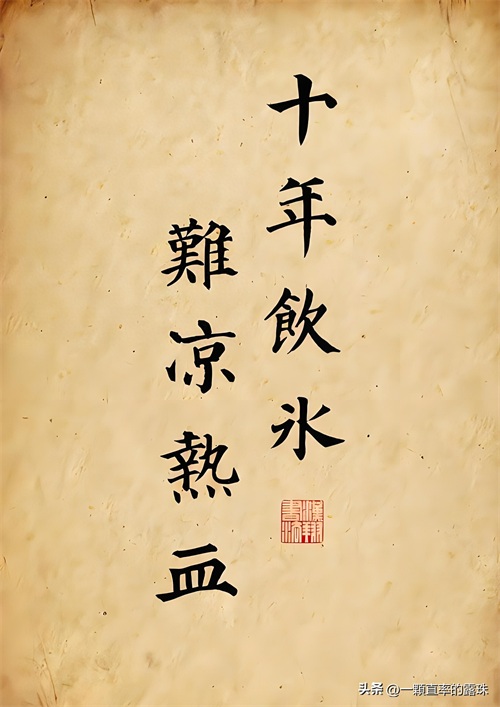 十年飲氷
難凉熱血
头条 @一颗直率的露珠